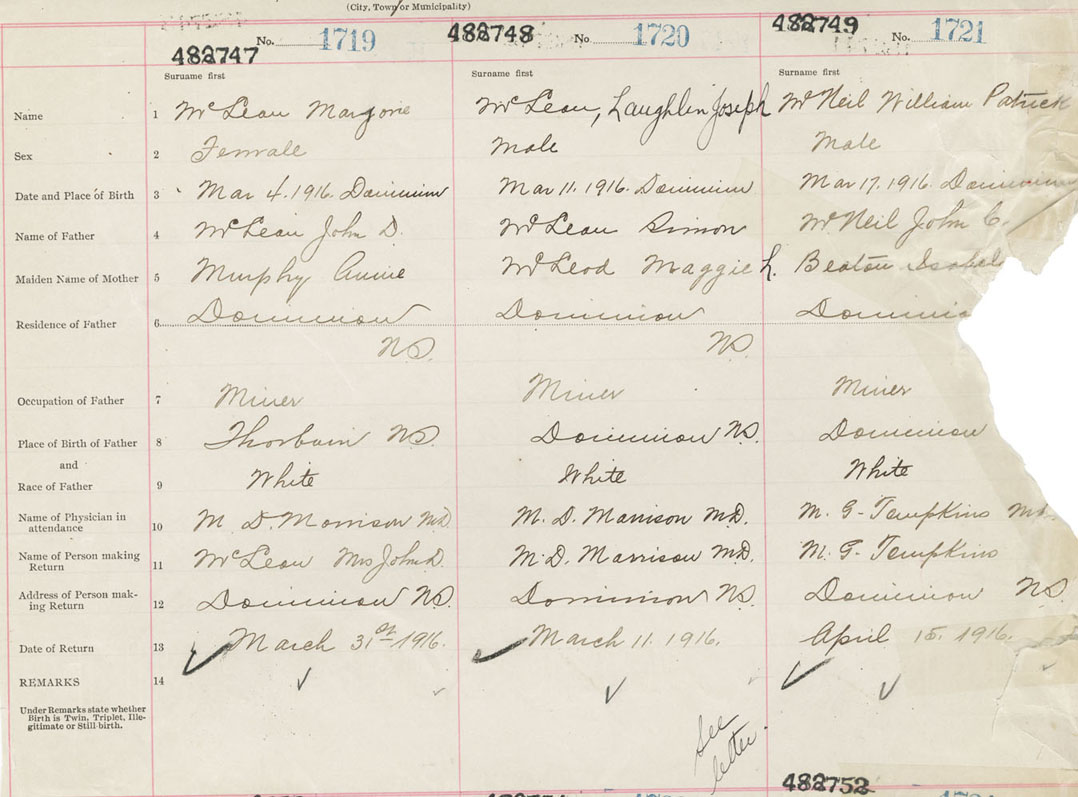 (City, Town or Municipality)
482747 No. 1719 482748 No 1720 482749 No. 1721
Surname first Surname first Surname first
Name 1 McLean Marjorie McLean, Laughlin Joseph McNeil William Patrick
Sex 2 Female Male Male
Date and Place of Birth 3 Mar 4. 1916. Dominion Mar 11. 1916. Dominion Mar 17. 1916. Dominion
Name of Father 4 McLean John D. McLean Simon McNeil John C.
Maiden Name of Mother 5 Murphy Annie McLeod Maggie L. Beaton Isabel
Residence of Father 6 Dominion Dominion Dominion
NS. NS.
Occupation of Father 7 Miner Miner Miner
Place of Birth of Father 8 Thorburn NS. Dominion NS. Dominion
and
Race of Father 9 White White White
Name of Physician in
attendance 10 M D. Morrison MD. M. D. Morrison MD. M. G. Tompkins MD.
Name of Person making
Return 11 McLean Mrs John D. M. D. Morrison MD. M. G. Tompkins
Address of Person mak-
ing Return 12 Dominion NS. Dominion NS. Dominion NS.
Date of Return 13 March 31st 1916. March 11. 1916. April 15. 1916.
REMARKS 14
Under Remarks state whether
Birth is Twin, Triplet, Ille-
gitimate or Still-birth.
See
letter.
482752